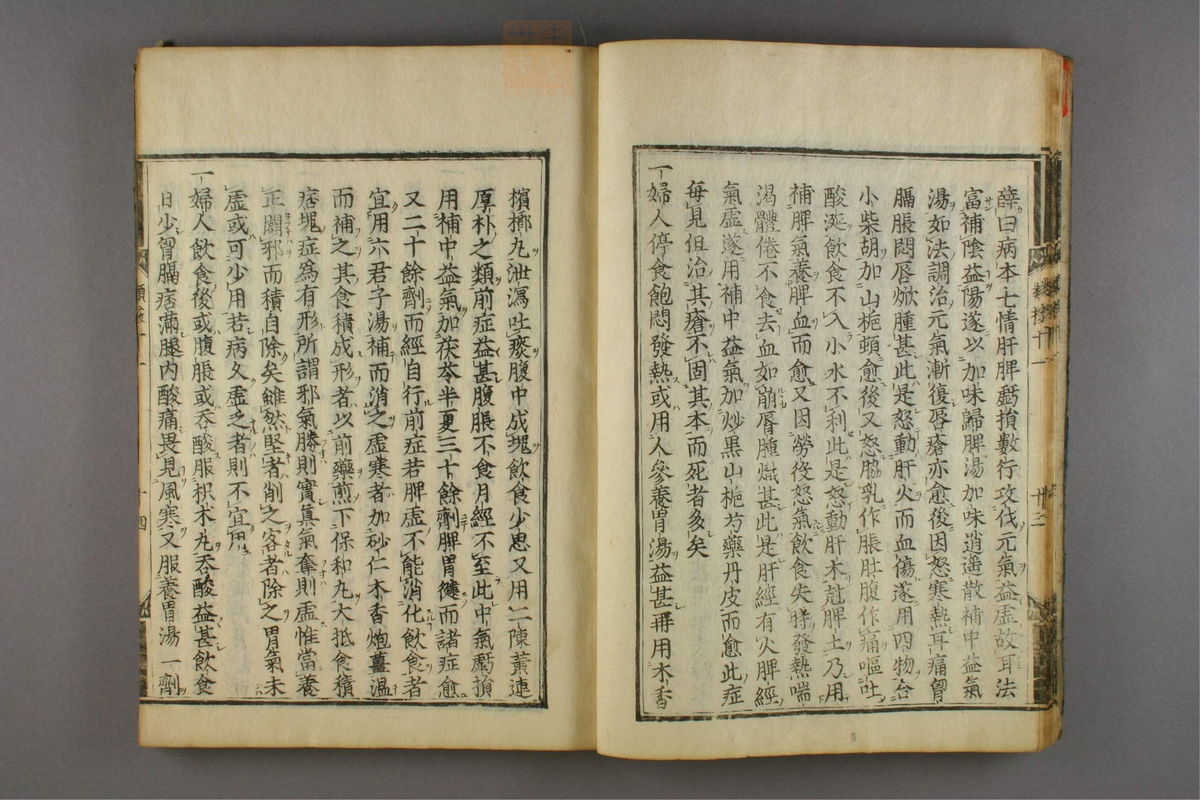 薛曰病本七情肝脾虧損數行攻伐元氣益虛故耳法
富補陰益陽遂以加味歸脾湯加味逍遙散補中益氣
湯如法調治元氣漸復唇瘡亦愈後因怒寒熱耳痛胷
膈脹悶唇焮腫甚此是怒動肝火而血傷遂用四物合
小柴胡加山梔頓愈後又怒脇乳作脹肚腹作痛嘔吐
酸涎飲食不入小水不利此是怒動肝木尅脾土乃用
補脾氣養脾血而愈又因勞役怒氣飲食失時發熱喘
渴體倦不食去血如崩唇腫熾甚此是肝經有火脾經
氣虛遂用補中益氣加炒黑山梔芍藥丹皮而愈此症
每見但治其瘡不固其本而死者多矣
一婦人停食飽悶發熱或用人參養胃湯益甚再用木香
檳榔丸泄瀉吐痰腹中成塊飲食少思又用二陳黃連
厚朴之類前症益甚腹脹不食月經不至此中氣虧損
用補中益氣加茯苓半夏三十餘劑脾胃健而諸症愈
又二十餘劑而經自行前症若脾虛不能消化飲食者
宜用六君子湯補而消之虛寒者加砂仁木香炮薑温
而補之其食積成形者以前藥煎下保和丸大抵食積
痞塊症為有形所謂邪氣勝則實眞氣奪則虛惟當養
正闢邪而積自除矣雖然堅者削之客者除之胃氣未
虛或可少用若病久虛乏者則不宜用
一婦人飲食後或腹脹或吞酸服枳术丸吞酸益甚飲食
日少胷膈痞滿腿内酸痛畏見風寒又服養胃湯一劑
十四